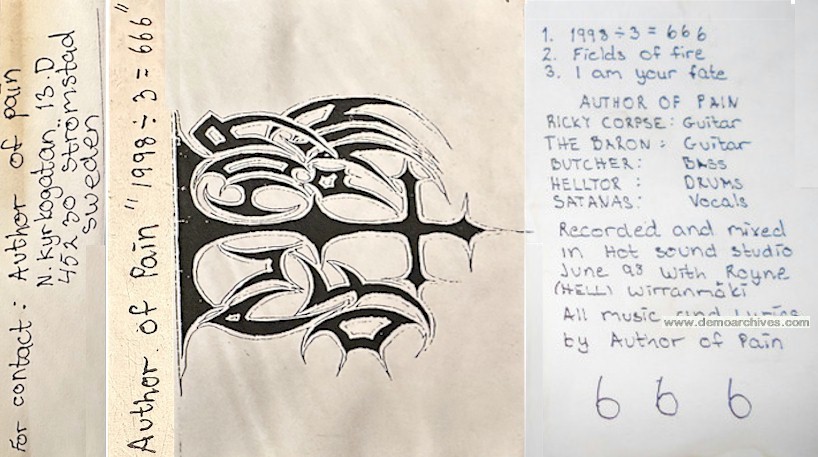 For contact: Author of pain
N. Kyrkogatan 13.D
452 30 Strömstad
Sweden
Author of Pain "1998÷3=666"
1. 1998÷3=666
2. Fields of fire
3. I am your fate
AUTHOR OF PAIN
RICKY CORPSE: Guitar
THE BARON: Guitar
BUTCHER: BASS
HELLTOR: DRUMS
SATANAS: Vocals
Recorded and mixed
in Hot sound studio
June 98 with Royne
(HELL) Wirranmäki
All music and Lyrics
www.demoarchives.com
by Author of Pain
6 6 6